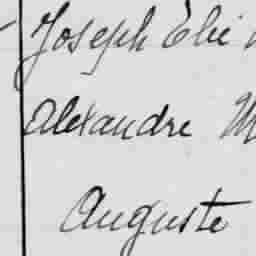 Joseph Elie
Alexandre M
Auguste